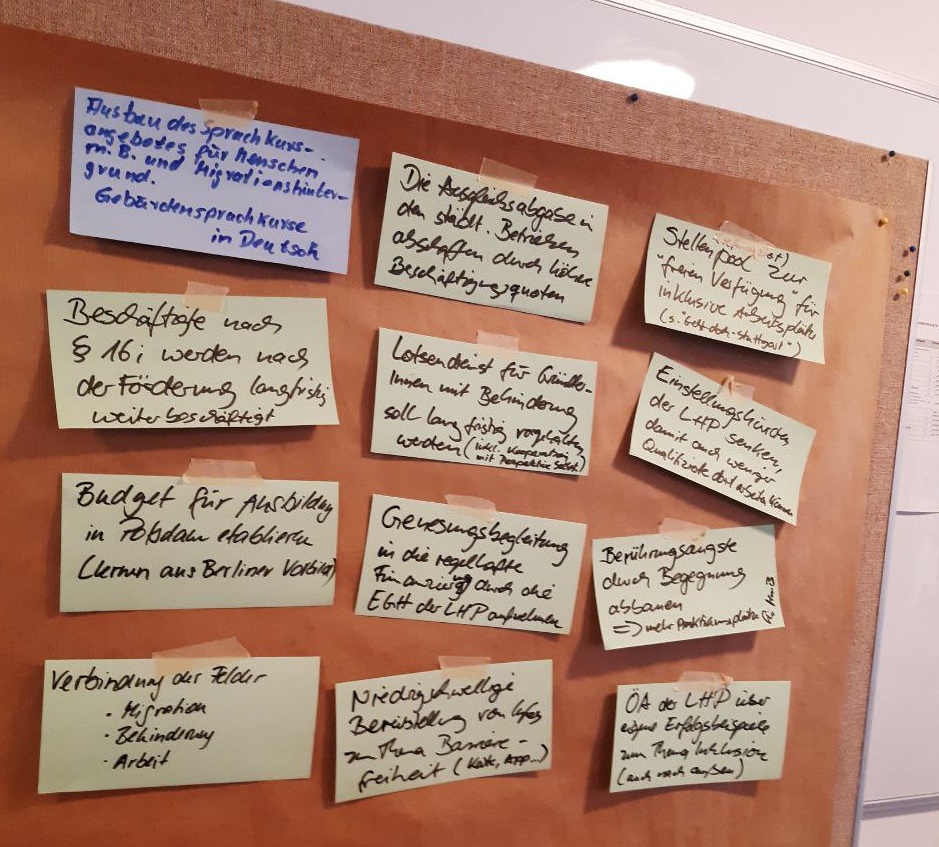 Ausbau des Sprachkurs-
angebotes für Menschen
m. B. und Migrationshinter-
grund.
Gebärdensprachkurse
in Deutsch
Beschäftigte nach
§ 16i werden nach
der Förderung langfristig
weiterbeschäftigt
Budget für Ausbildung
in Potsdam etablieren
(lernen aus Berliner Vorbild)
Verbindung der Felder
· Migration
· Behinderung
· Arbeit
Die Ausgleichsabgabe in
den städt. Betrieben
abschaffen durch höhere
Beschäftigungsquoten
Lotsendienst für Gründer-
Innen mit Behinderung
soll langfristig vorgehalten
werden (inkl. Kooperation
mit Perspektive Selbst.)
Genesungsbegleitung
in die regelhafte
Finanzierung durch die
EGH der LHP aufnehmen
Niedrigschwellige
Bereitstellung von Infos
zum Thema Barriere-
freiheit (Karte, App...)
Stellenpool zur
"freien Verfügung" für
inklusive Arbeitsplätze
(s. "Geht doch - Stuttgart")
Einstellungshürden
der LHP senken,
damit auch weniger
Qualifizierte dort arbeiten können
Berührungsängste
durch Begegnung
abbauen
=> mehr Praktikumsplätze
ÖA der LHP über
eigene Erfolgsbeispiele
zum Thema Inklusion
(auch nach außen)